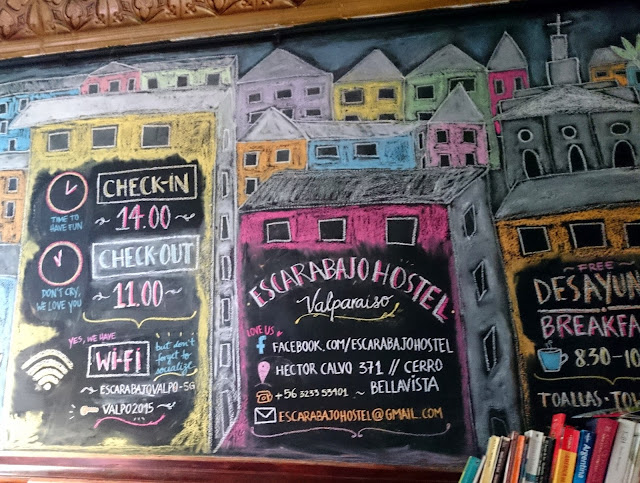 CHECK-IN
14.00
TIME TO
HAVE FUN
CHECK-OUT
11.00
DON'T CRY,
WE LOVE YOU
YES, WE HAVE
WI-FI
but don't
forget to
socialize
ESCARABAJOVALPO-5G
VALPO2015
ESCARABAJO HOSTEL
Valparaiso
LOVE US
FACEBOOK.COM/ESCARABAJOHOSTEL
HECTOR CALVO 371 // CERRO
BELLAVISTA
+56 3233 53101
ESCARABAJOHOSTEL@GMAIL.COM
~ FREE
DESAYUN
BREAKFA
8:30-10
TOALLAS - TOW
Argentina